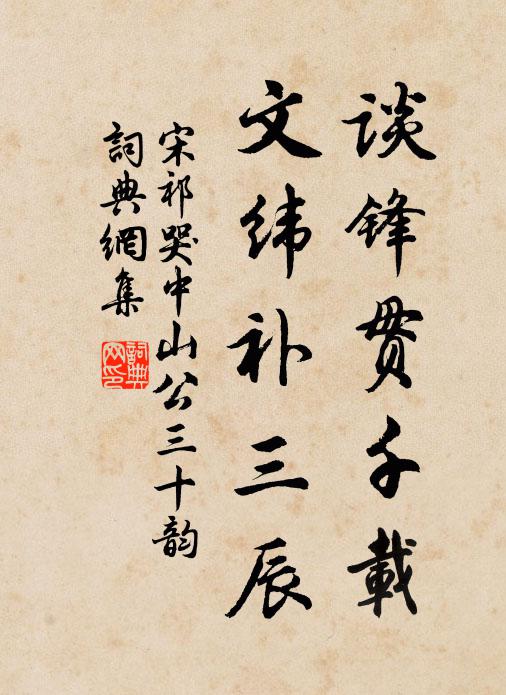 谈锋贯千载
文纬补三辰
宋祁哭中山公三十韵
詞典網集
詞典网印